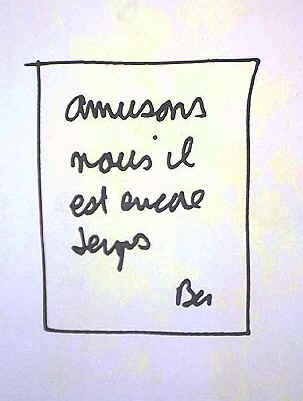 amusons
nous il
est encore
temps
Ben